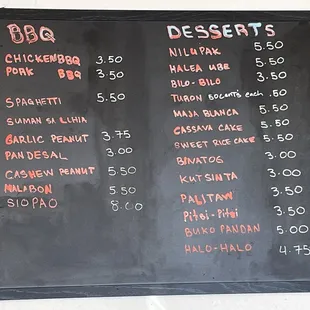 BBQ
CHICKEN BBQ 3.50
PORK BBQ 3.50
SPAGHETTI 5.50
SUMAN SA LIHIA
GARLIC PEANUT 3.75
PANDESAL 3.00
CASHEW PEANUT 5.50
MALABON 5.50
SIOPAO 8.00
DESSERTS
NILUPAK 5.50
HALEA UBE 5.50
BILO-BILO 3.50
TURON 50CENTS each .50
MAJA BLANCA 5.50
CASSAVA CAKE 5.50
SWEET RICE CAKE 5.50
BINATOG 3.00
KUTSINTA 3.00
PALITAW 3.50
Pitsi-Pitsi 3.50
BUKO PANDAN 5.00
HALO-HALO 4.75